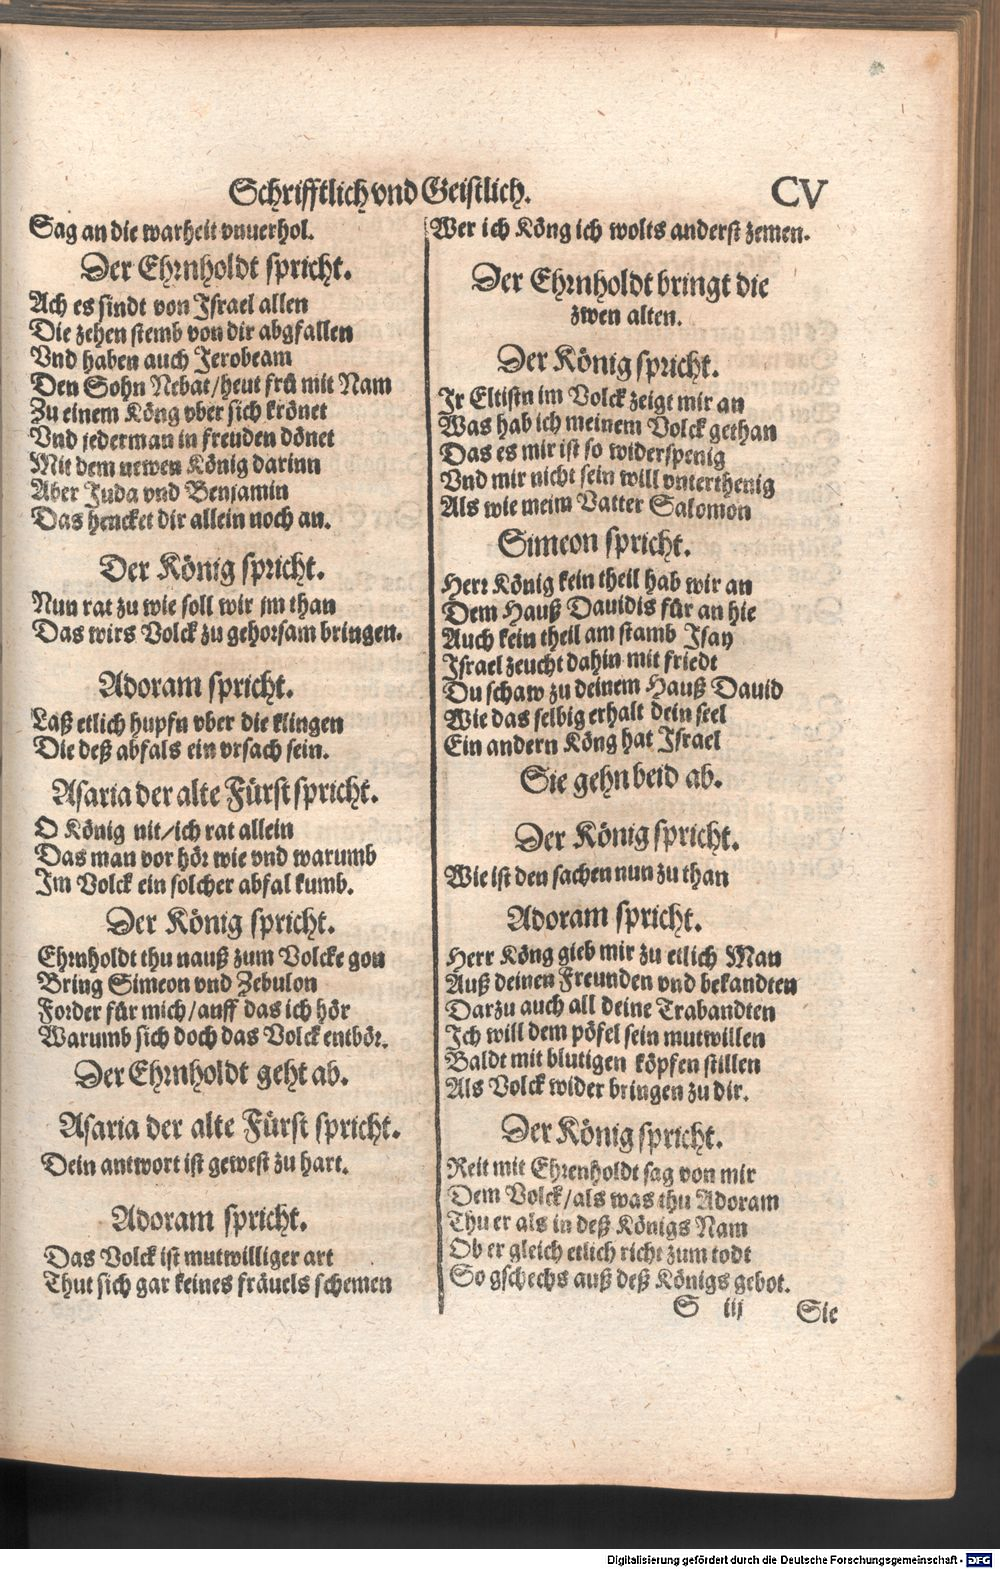 Schrifftlich vnd Geistlich. CV
Sag an die warheit vnuerhol.
Der Ehrnholdt spricht.
Ach es sindt von Israel allen
Die zehen stemb von dir abgfallen
Vnd haben auch Jerobeam
Den Sohn Nebat/heut frü mit Nam
Zu einem Köng vber sich krönet
Vnd jederman in freuden dönet
Mit dem newen König darinn
Aber Juda vnd Benjamin
Das hencket dir allein noch an.
Der König spricht.
Nun rat zu wie soll wir jm than
Das wirs Volck zu gehorsam bringen.
Adoram spricht.
Laß etlich hupfn vber die klingen
Die deß abfals ein vrsach sein.
Asaria der alte Fürst spricht.
O König nit/ich rat allein
Das man vor hör wie vnd warumb
Im Volck ein solcher abfal kumb.
Der König spricht.
Ehrnholdt thu nauß zum Volcke gon
Bring Simeon vnd Zebulon
Forder für mich/auff das ich hör
Warumb sich doch das Volck entbör.
Der Ehrnholdt geht ab.
Asaria der alte Fürst spricht.
Dein antwort ist gewest zu hart.
Adoram spricht.
Das Volck ist mutwilliger art
Thut sich gar keines fräuels schemen
Wer ich Köng ich wolts anderst zemen.
Der Ehrnholdt bringt die
zwen alten.
Der König spricht.
Jr Eltistn im Volck zeigt mir an
Was hab ich meinem Volck gethan
Das es mir ist so widerspenig
Vnd mir nicht sein will vnterthenig
Als wie meim Vatter Salomon
Simeon spricht.
Herr König kein theil hab wir an
Dem Hauß Dauidis für an hie
Auch kein theil am stamb Isay
Israel zeucht dahin mit friedt
Du schaw zu deinem Hauß Dauid
Wie das selbig erhalt dein seel
Ein andern Köng hat Israel
Sie gehn beid ab.
Der König spricht.
Wie ist den sachen nun zu than
Adoram spricht.
Herr Köng gieb mir zu etlich Man
Auß deinen Freunden vnd bekandten
Darzu auch all deine Trabandten
Ich will dem pöfel sein mutwillen
Baldt mit blutigen köpfen stillen
Als Volck wider bringen zu dir.
Der König spricht.
Reit mit Ehrenholdt sag von mir
Dem Volck/als was thu Adoram
Thu er als in deß Königs Nam
Ob er gleich etlich richt zum todt
So gschechs auß deß Königs gebot.
S iij Sie
Digitalisierung gefördert durch die Deutsche Forschungsgemeinschaft - DFG